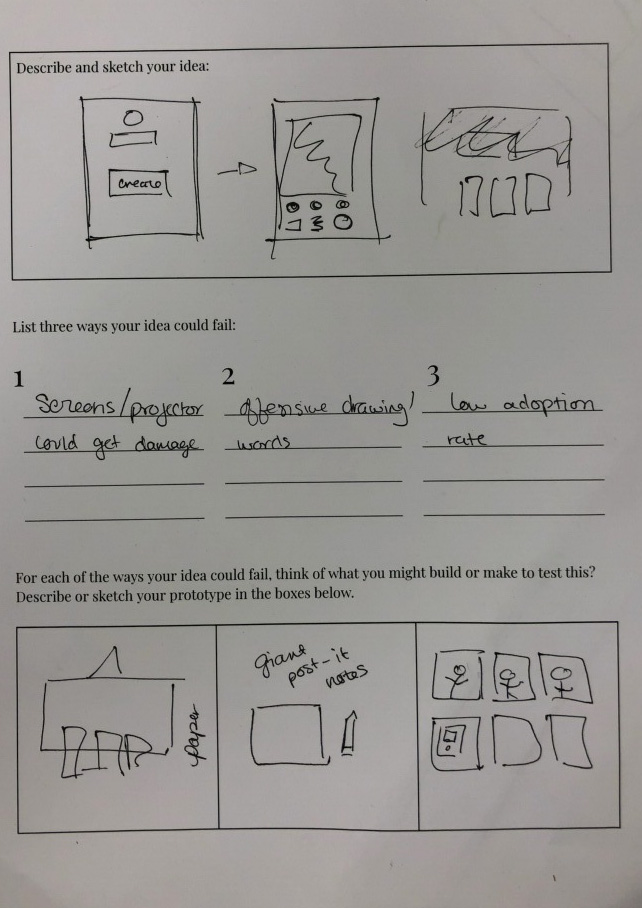 Describe and sketch your idea:
Create
List three ways your idea could fail:
1
Screens/projector
could get damage
2
offensive drawing/
words
3
low adoption
rate
For each of the ways your idea could fail, think of what you might build or make to test this?
Describe or sketch your prototype in the boxes below.
paper
giant
post-it
notes